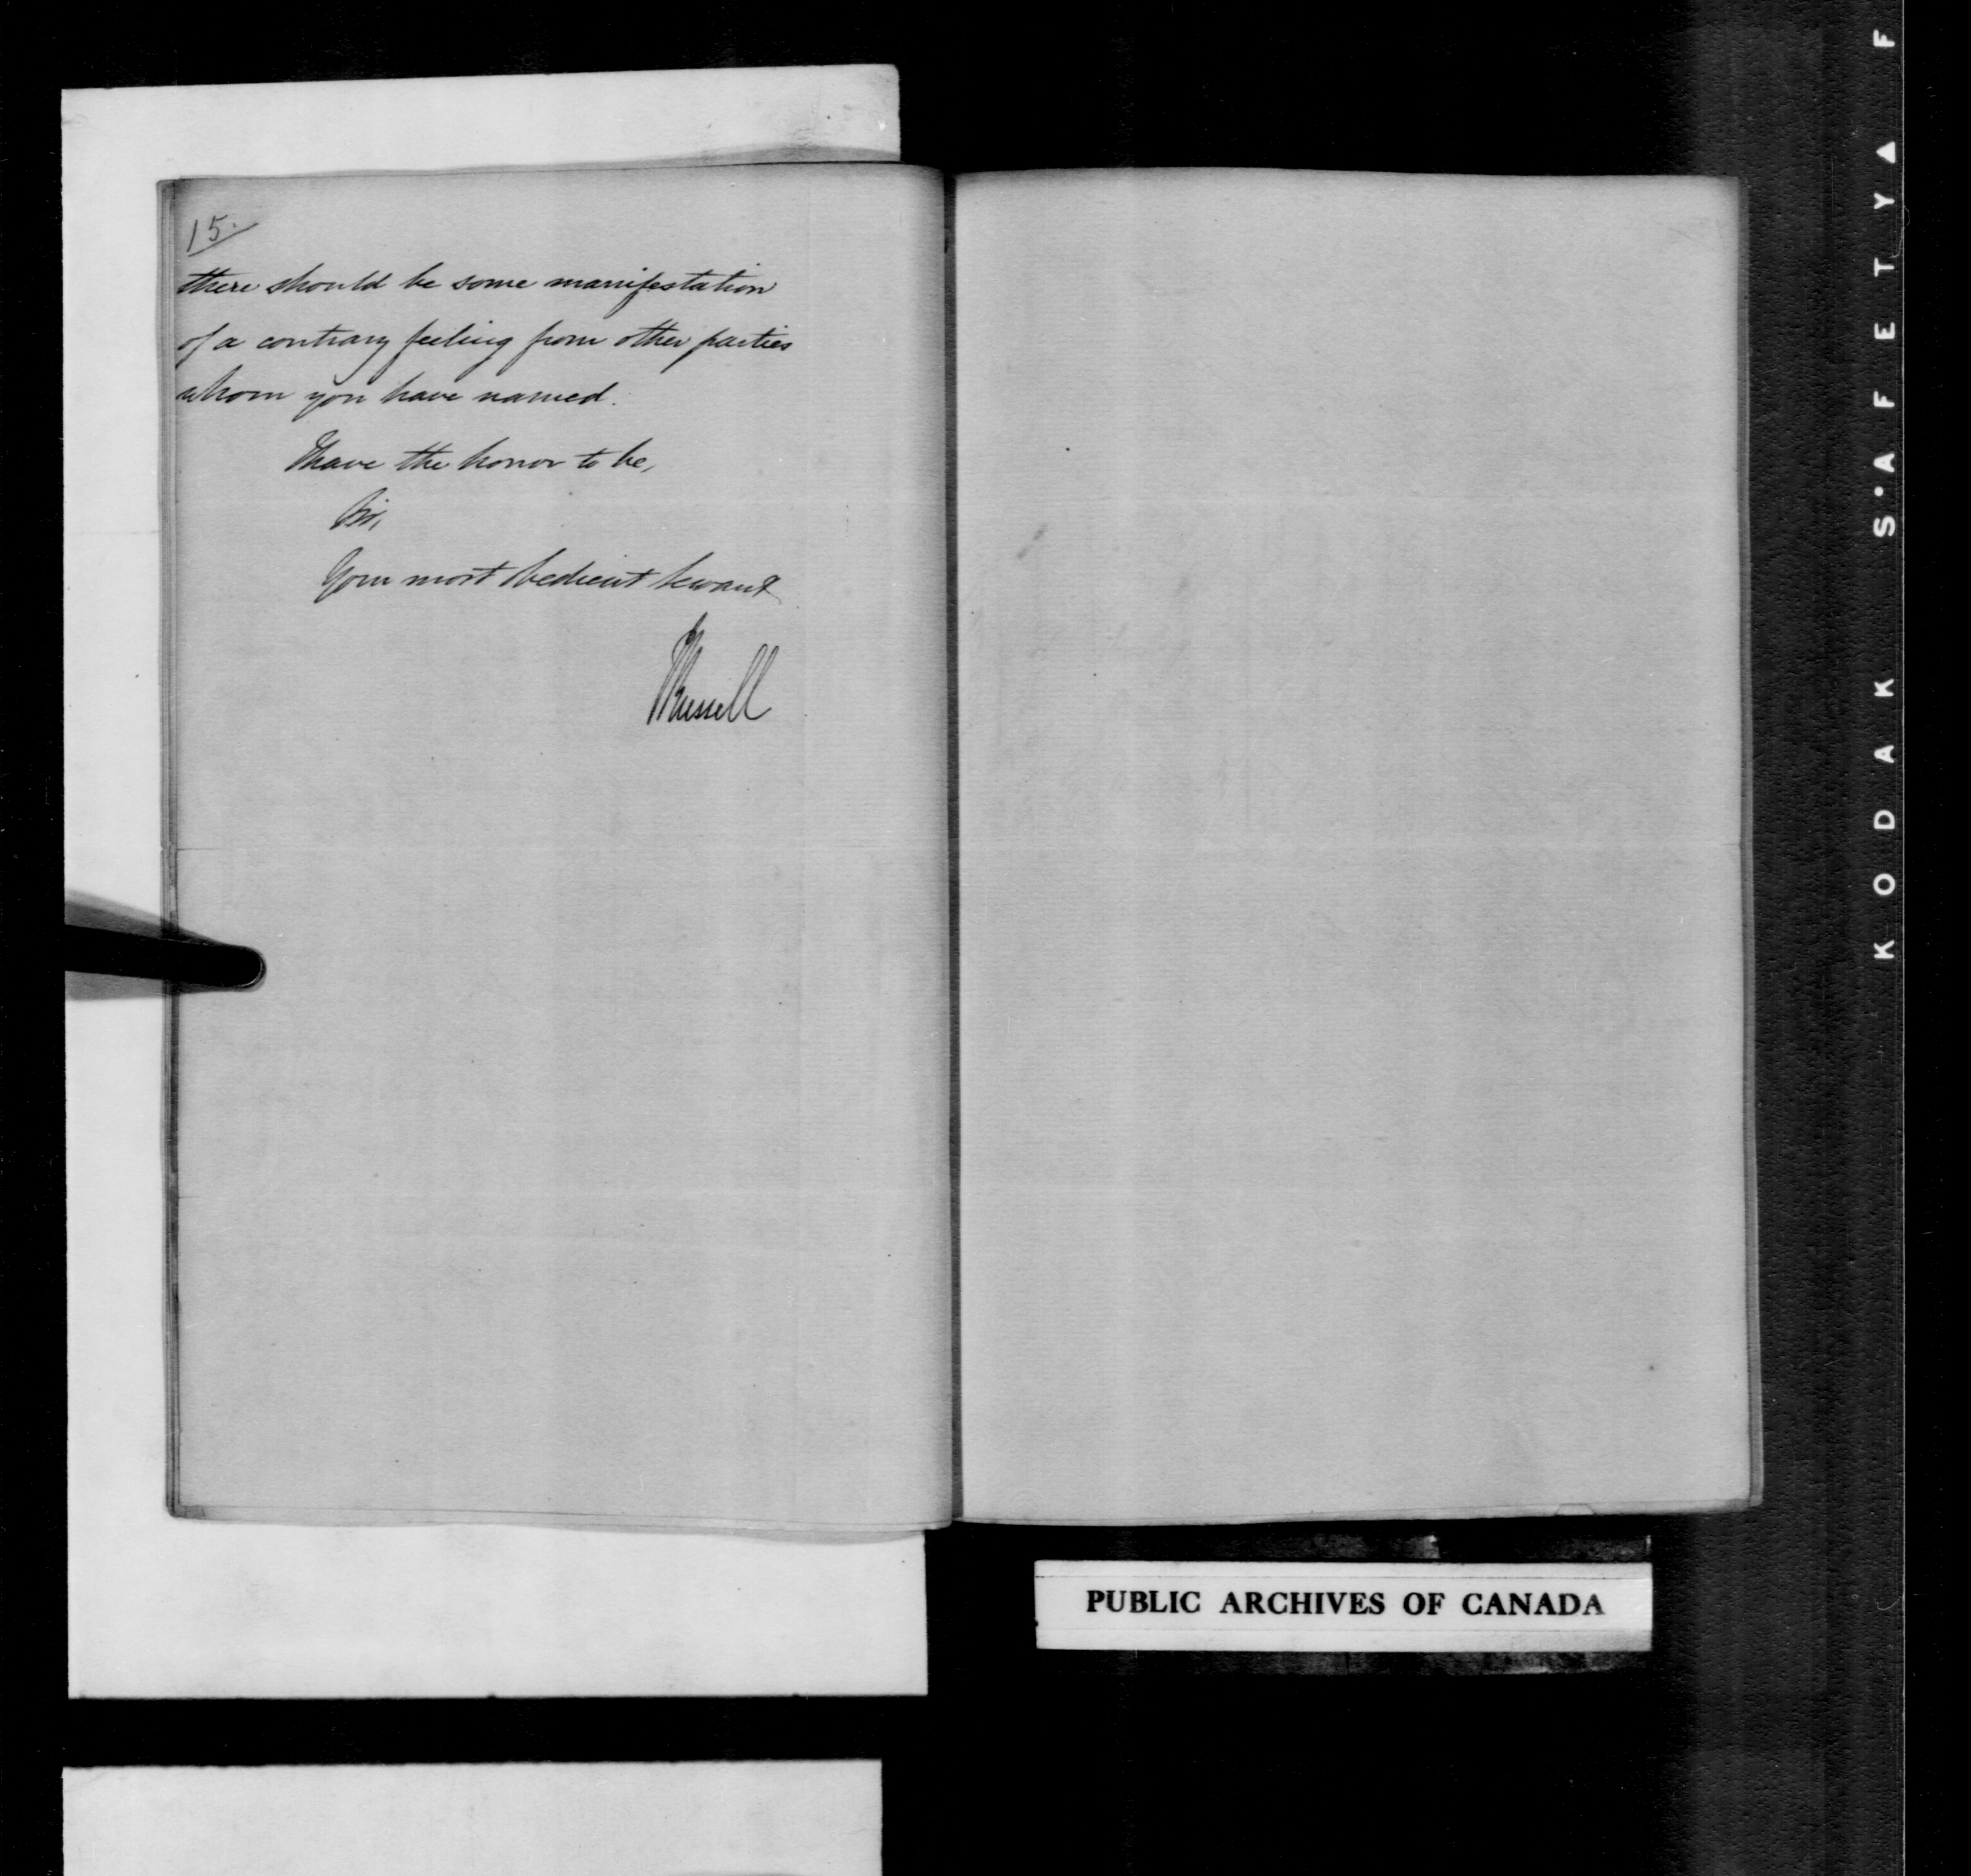 15.
there should be some manifestation
of a contrary feeling from other parties
whom you have named.
I have the honor to be,
Sir,
Your most obedient Servant
JRussell
PUBLIC ARCHIVES OF CANADA
KODAK S·AFETY▲F